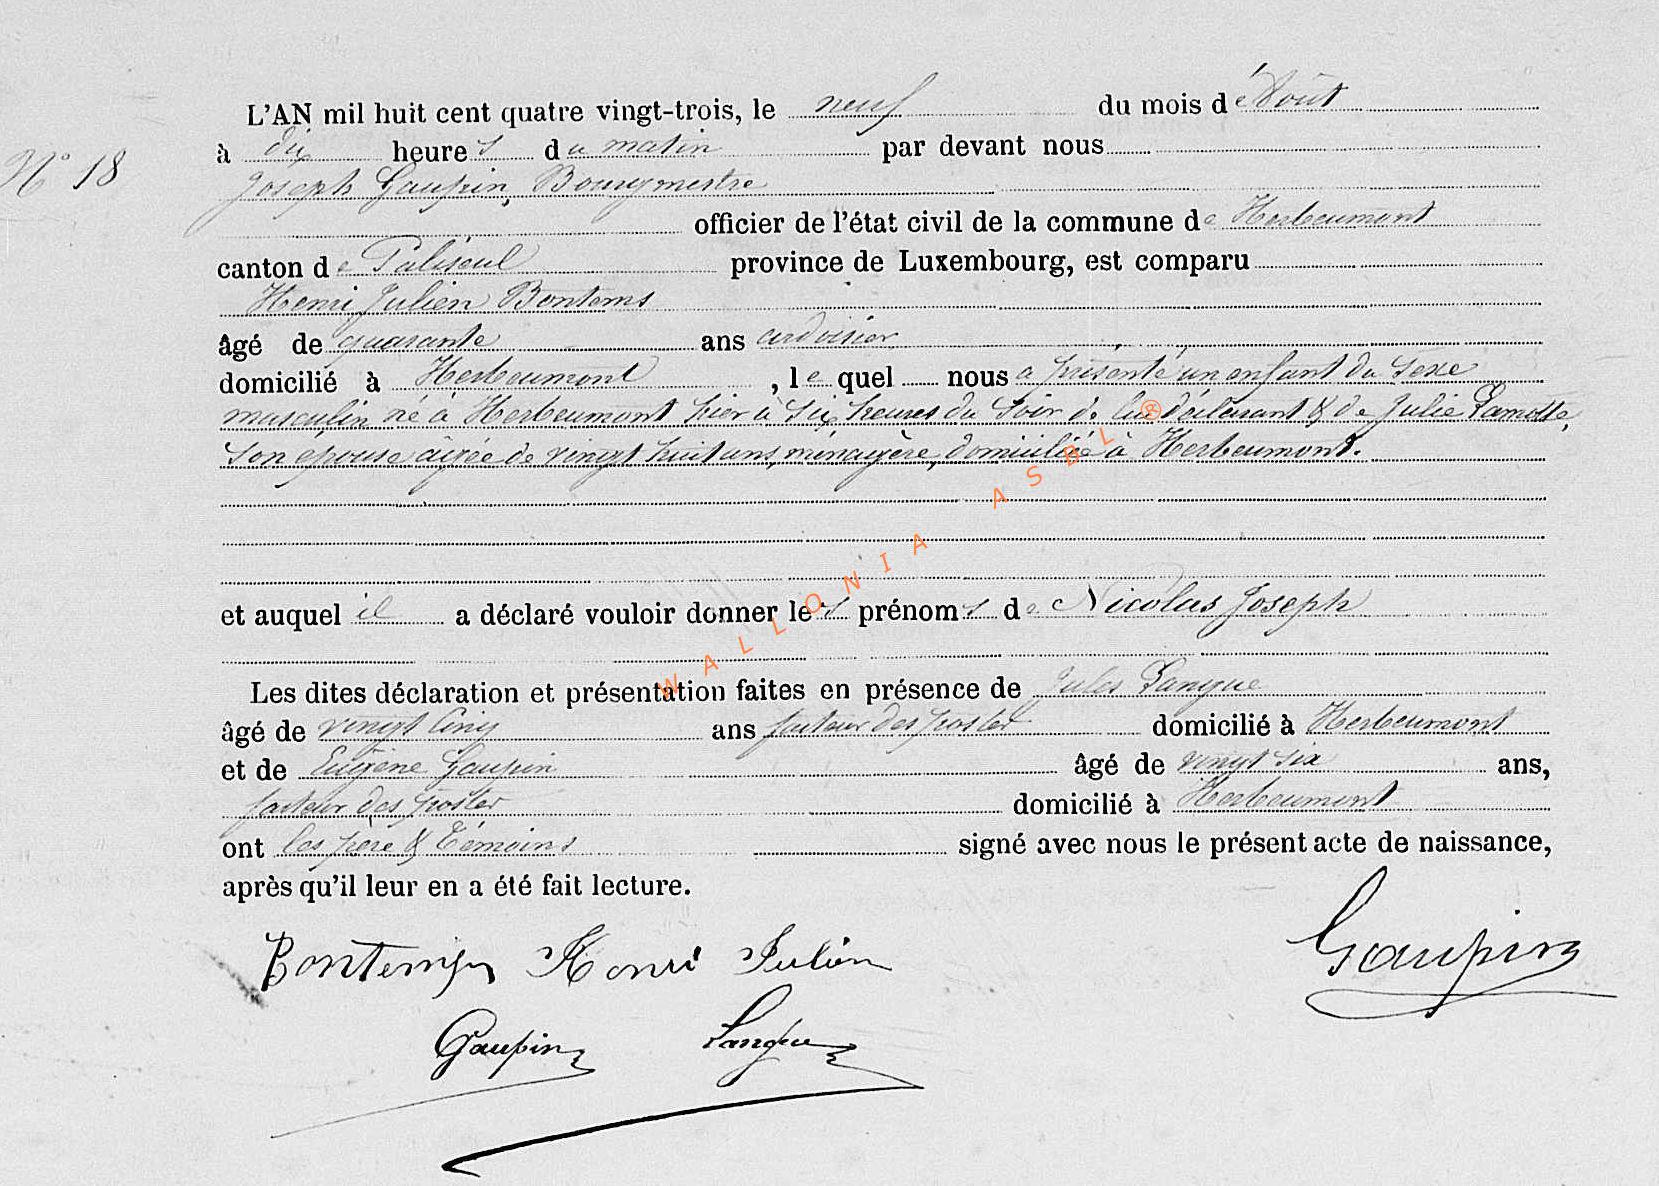 L'AN mil huit cent quatre vingt-trois, le neuf du mois d'Août
N° 18
à dix heures du matin par devant nous
Joseph Gaupin, Bourgmestre
officier de l'état civil de la commune de Herbeumont
canton de Paliseul province de Luxembourg, est comparu
Henri Julien Bontems
âgé de quarante ans ardoisier
domicilié à Herbeumont, lequel nous a présenté un enfant du sexe
masculin né à Herbeumont hier à six heures du soir de lui déclarant & de Julie Lamotte,
son épouse âgée de vingt huit ans, ménagère, domiciliée à Herbeumont.
et auquel il a déclaré vouloir donner les prénoms de Nicolas Joseph
Les dites déclaration et présentation faites en présence de Jules Langue
âgé de vingt cinq ans facteur des postes domicilié à Herbeumont
et de Eugène Gaupin âgé de vingt six ans,
facteur des postes domicilié à Herbeumont
ont les père & témoins signé avec nous le présent acte de naissance,
après qu'il leur en a été fait lecture.
Bontemps Henri Julien Gaupin
Gaupin Langue
WALLONIA ASBL ®